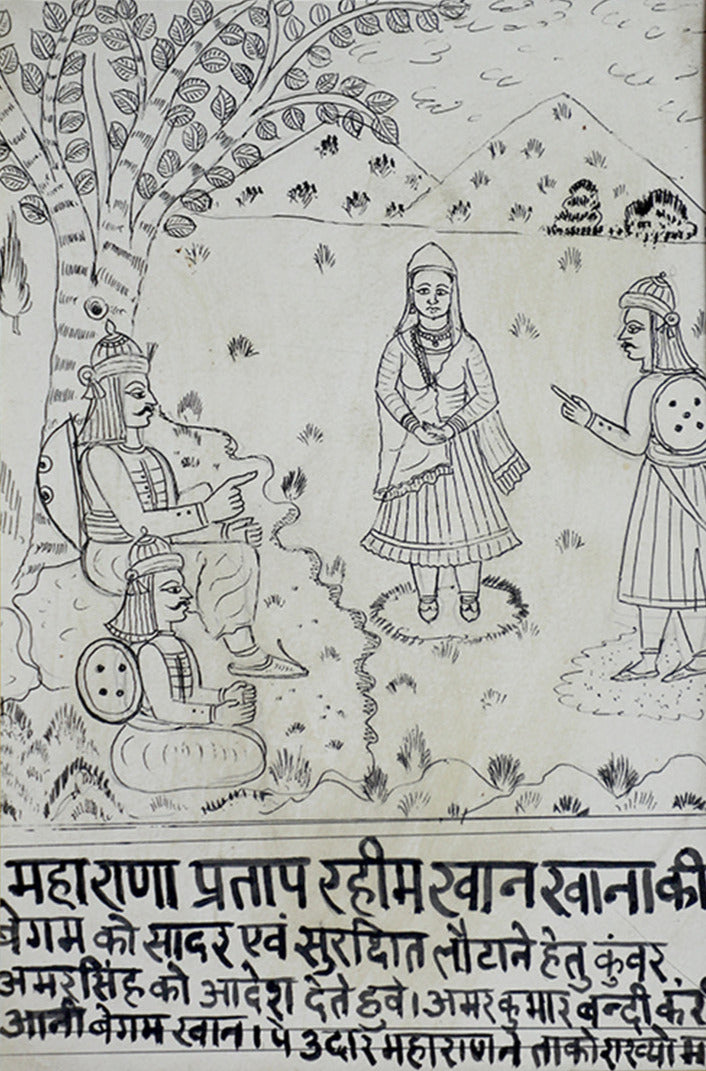 महाराणा प्रताप रहीम खान खाना की
बेगम को सादर एवं सुरक्षित लौटाने हेतु कुंवर
अमरसिंह को आदेश देते हुवे। अमर कुमार बन्दी करी
आनी बेगम खान। प उदार महाराण ने ताको राख्यो म